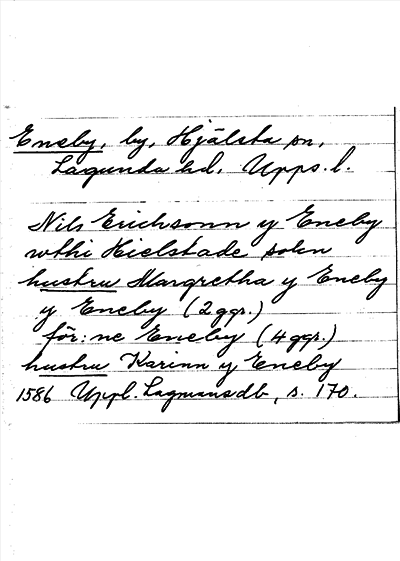 Eneby, by, Hjälsta sn,
Lagunda hd, Upps. l.
Nils Erichsonn y Eneby
wthi Hielstade sokn
hustru Margretha y Eneby
y Eneby (2 ggr.)
för:ne Eneby (4 ggr.)
hustru Karinn y Eneby
1586 Uppl. Lagmansdb, s. 170.